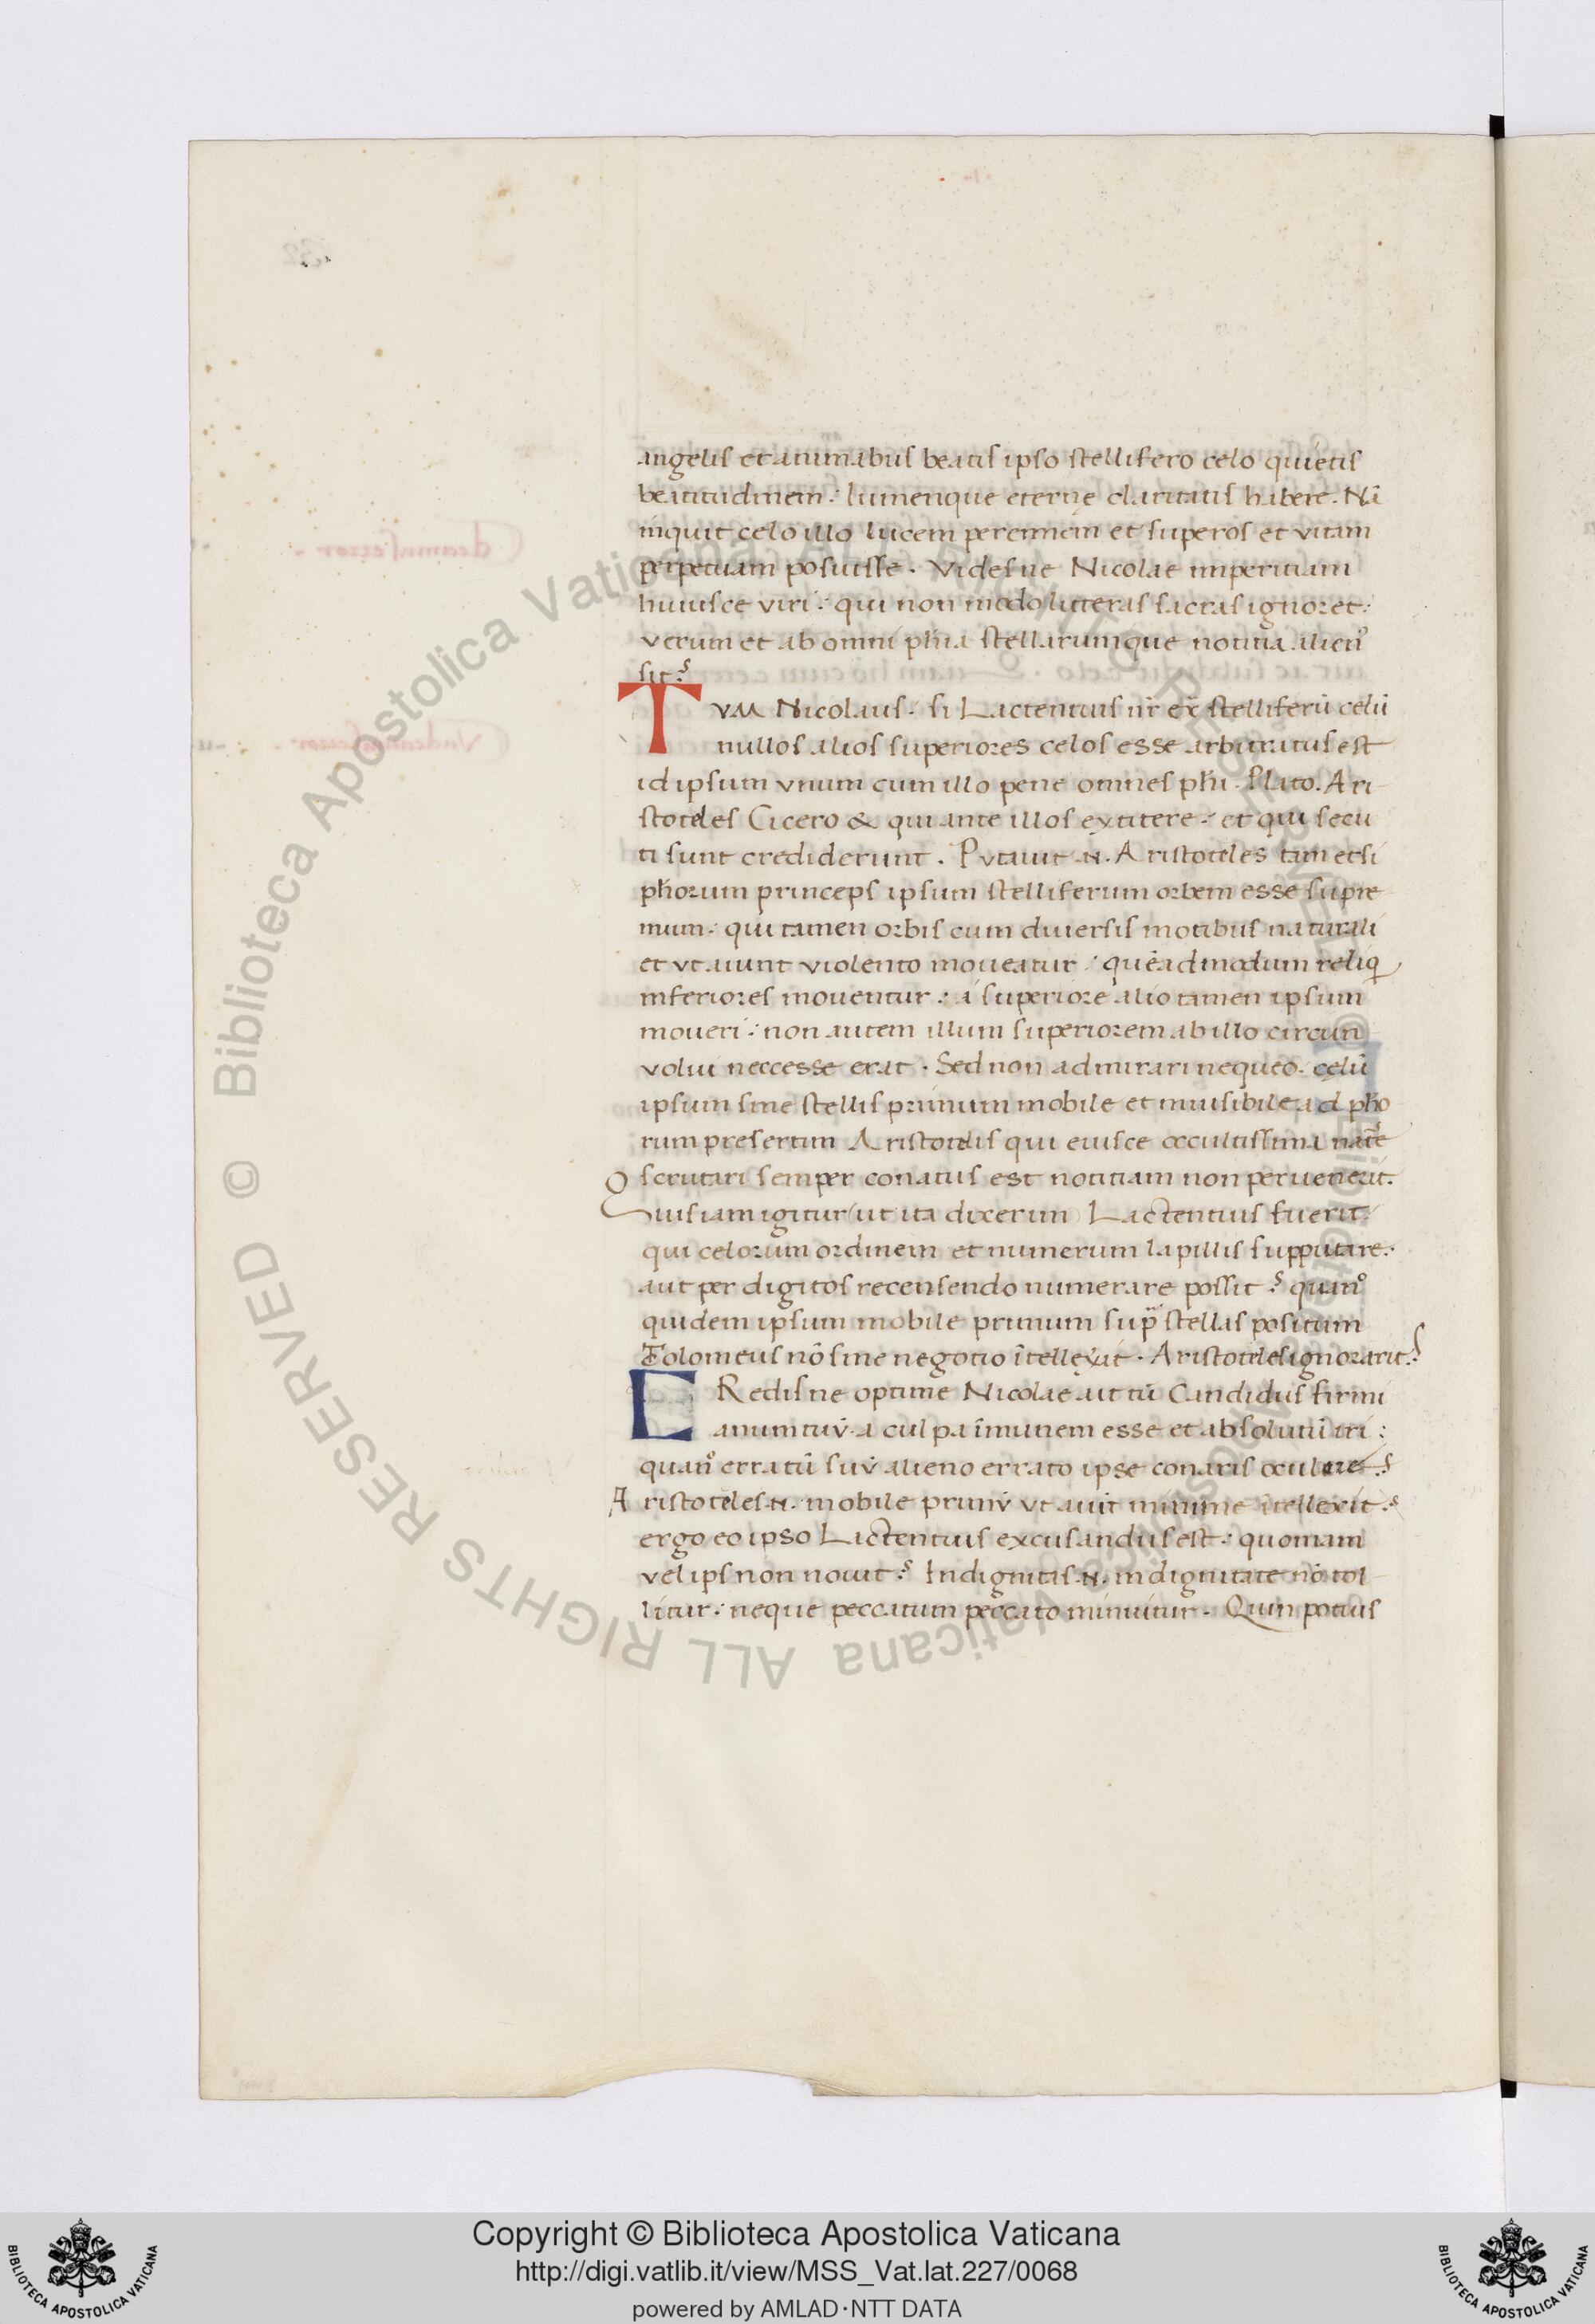 angelis et animabus beatis ipso stellifero celo quietis
beatitudinem: lumenque eterne claritatis habere. Nā
inquit celo illo lucem perennem et superos et vitam
perpetuam posuisse. Videsne Nicolae imperitiam
huiusce viri: qui non modo litteras sacras ignoret:
verum et ab omni phia stellarumque notitia alienꝰ
sit?
TVM Nicolaus. si Lactentius nr̄ ex stelliferū celū
nullos alios superiores celos esse arbitratus est
id ipsum vnum cum illo pene omnes phi. Plato. Ari
stoteles Cicero & qui ante illos extitere: et qui secu
ti sunt crediderunt. Putauit .n. Aristoteles tam etsi
phorum princeps ipsum stelliferum orbem esse supre
mum. qui tamen orbis cum diuersis motibus naturali
et vt aiunt violento moueatur: quēadmodum reliq
inferiores mouentur: a superiore alio tamen ipsum
moueri: non autem illum superiorem ab illo circun
volui neccesse erat. Sed non admirari nequeo. celū
ipsum sine stellis primum mobile et inuisibile ad pho
rum presertim Aristotelis qui eiusce occultissima
scrutari semper conatus est notitiam non peruenerit.
Quis iam igitur (ut ita dixerim) Lactentius fuerit:
qui celorum ordinem et numerum lapillis supputare:
aut per digitos recensendo numerare possit? quanº
quidem ipsum mobile primum sup̄ stellas positum
Tolomeus nō sine negotio ītellexit. Aristoteles ignorarit?
CRedisne optime Nicolae ait tū Candidus firmi
anum tuū a culpa īmunem esse et absolutū iri:
quanº erratū suū alieno errato ipse conaris oculere?
Aristoteles .n. mobile primū vt aiut minime ītellexit?
ergo eo ipso Lactentius excusandus est: quoniam
vel ips non nouit? Indignitas .n. indignitate nō tol
litur: neque peccatum peccato minuitur. Quin potius
Copyright © Biblioteca Apostolica Vaticana
http://digi.vatlib.it/view/MSS_Vat.lat.227/0068
powered by AMLAD·NTT DATA